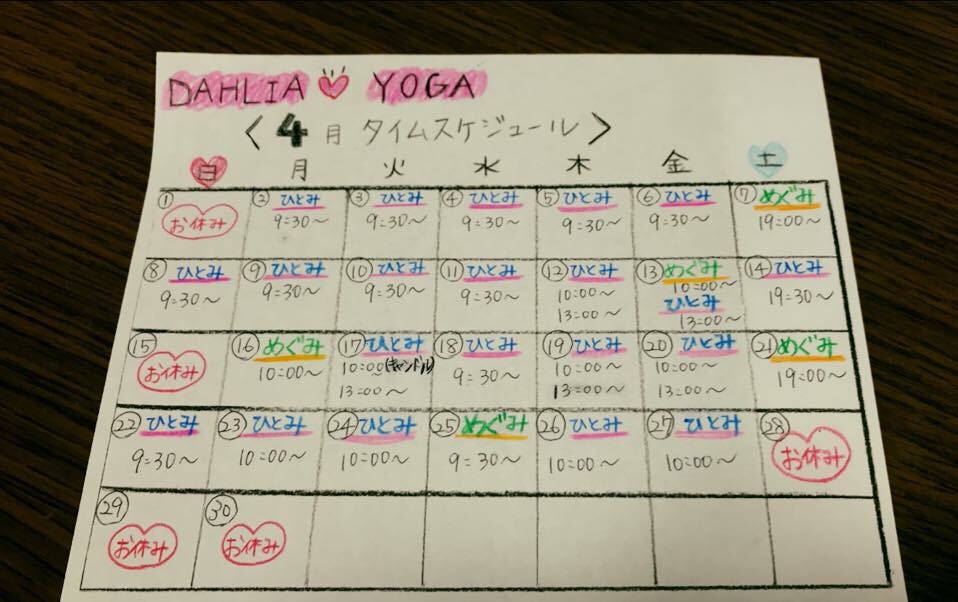 DAHLIA YOGA
〈4月 タイムスケジュール〉
日 月 火 水 木 金 土
① お休み
② ひとみ
9:30〜
③ ひとみ
9:30〜
④ ひとみ
9:30〜
⑤ ひとみ
9:30〜
⑥ ひとみ
9:30〜
⑦ めぐみ
19:00〜
⑧ ひとみ
9:30〜
⑨ ひとみ
9:30〜
⑩ ひとみ
9:30〜
⑪ ひとみ
9:30〜
⑫ ひとみ
10:00〜
13:00〜
⑬ めぐみ
10:00〜
ひとみ
13:00〜
⑭ ひとみ
19:30〜
⑮ お休み
⑯ めぐみ
10:00〜
⑰ ひとみ
10:00(キャンドル)
13:00〜
⑱ ひとみ
9:30〜
⑲ ひとみ
10:00〜
13:00〜
⑳ ひとみ
10:00〜
13:00〜
㉑ めぐみ
19:00〜
㉒ ひとみ
9:30〜
㉓ ひとみ
10:00〜
㉔ ひとみ
10:00〜
㉕ めぐみ
9:30〜
㉖ ひとみ
10:00〜
㉗ ひとみ
10:00〜
㉘ お休み
㉙ お休み
㉚ お休み